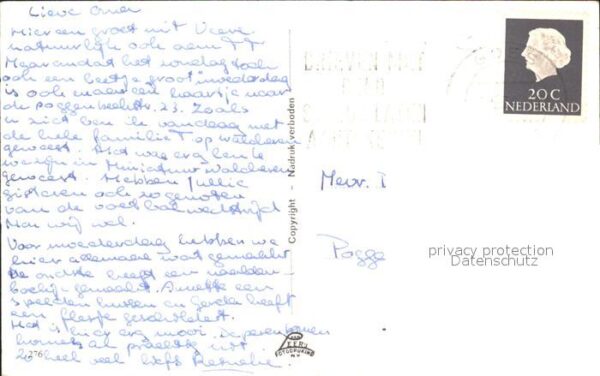 Lieve Oma
Hier een groet uit Veere
natuurlijk ook aan TT
Maar omdat het zondag toch
ook een beetje groot moederdag
is ook maar een kaartje naar
de Poggenbeekstr. 23. Zoals
u ziet ben ik vandaag met
de hele familie T op walcheren
geweest. Het was erg leuk
in Miniatuur Walcheren
geweest. Hebben jullie
gisteren ook zo genoten
van de voetbalwedstrijd
Nou wij wel.
Voor moederdag hebben we
hier allemaal wat gemaakt
De oudste heeft een naalden
boekje gemaakt. Annette een
spelden kussen en Gerda heeft
een flesje geschilderd.
Het is erg mooi. De perenbomen
komen al prachtig uit
Zo heel veel liefs
Copyright - Nadruk verboden
20 C
NEDERLAND
Mevr. T
Pogge
privacy protection
Datenschutz
276
FOTODRUKING